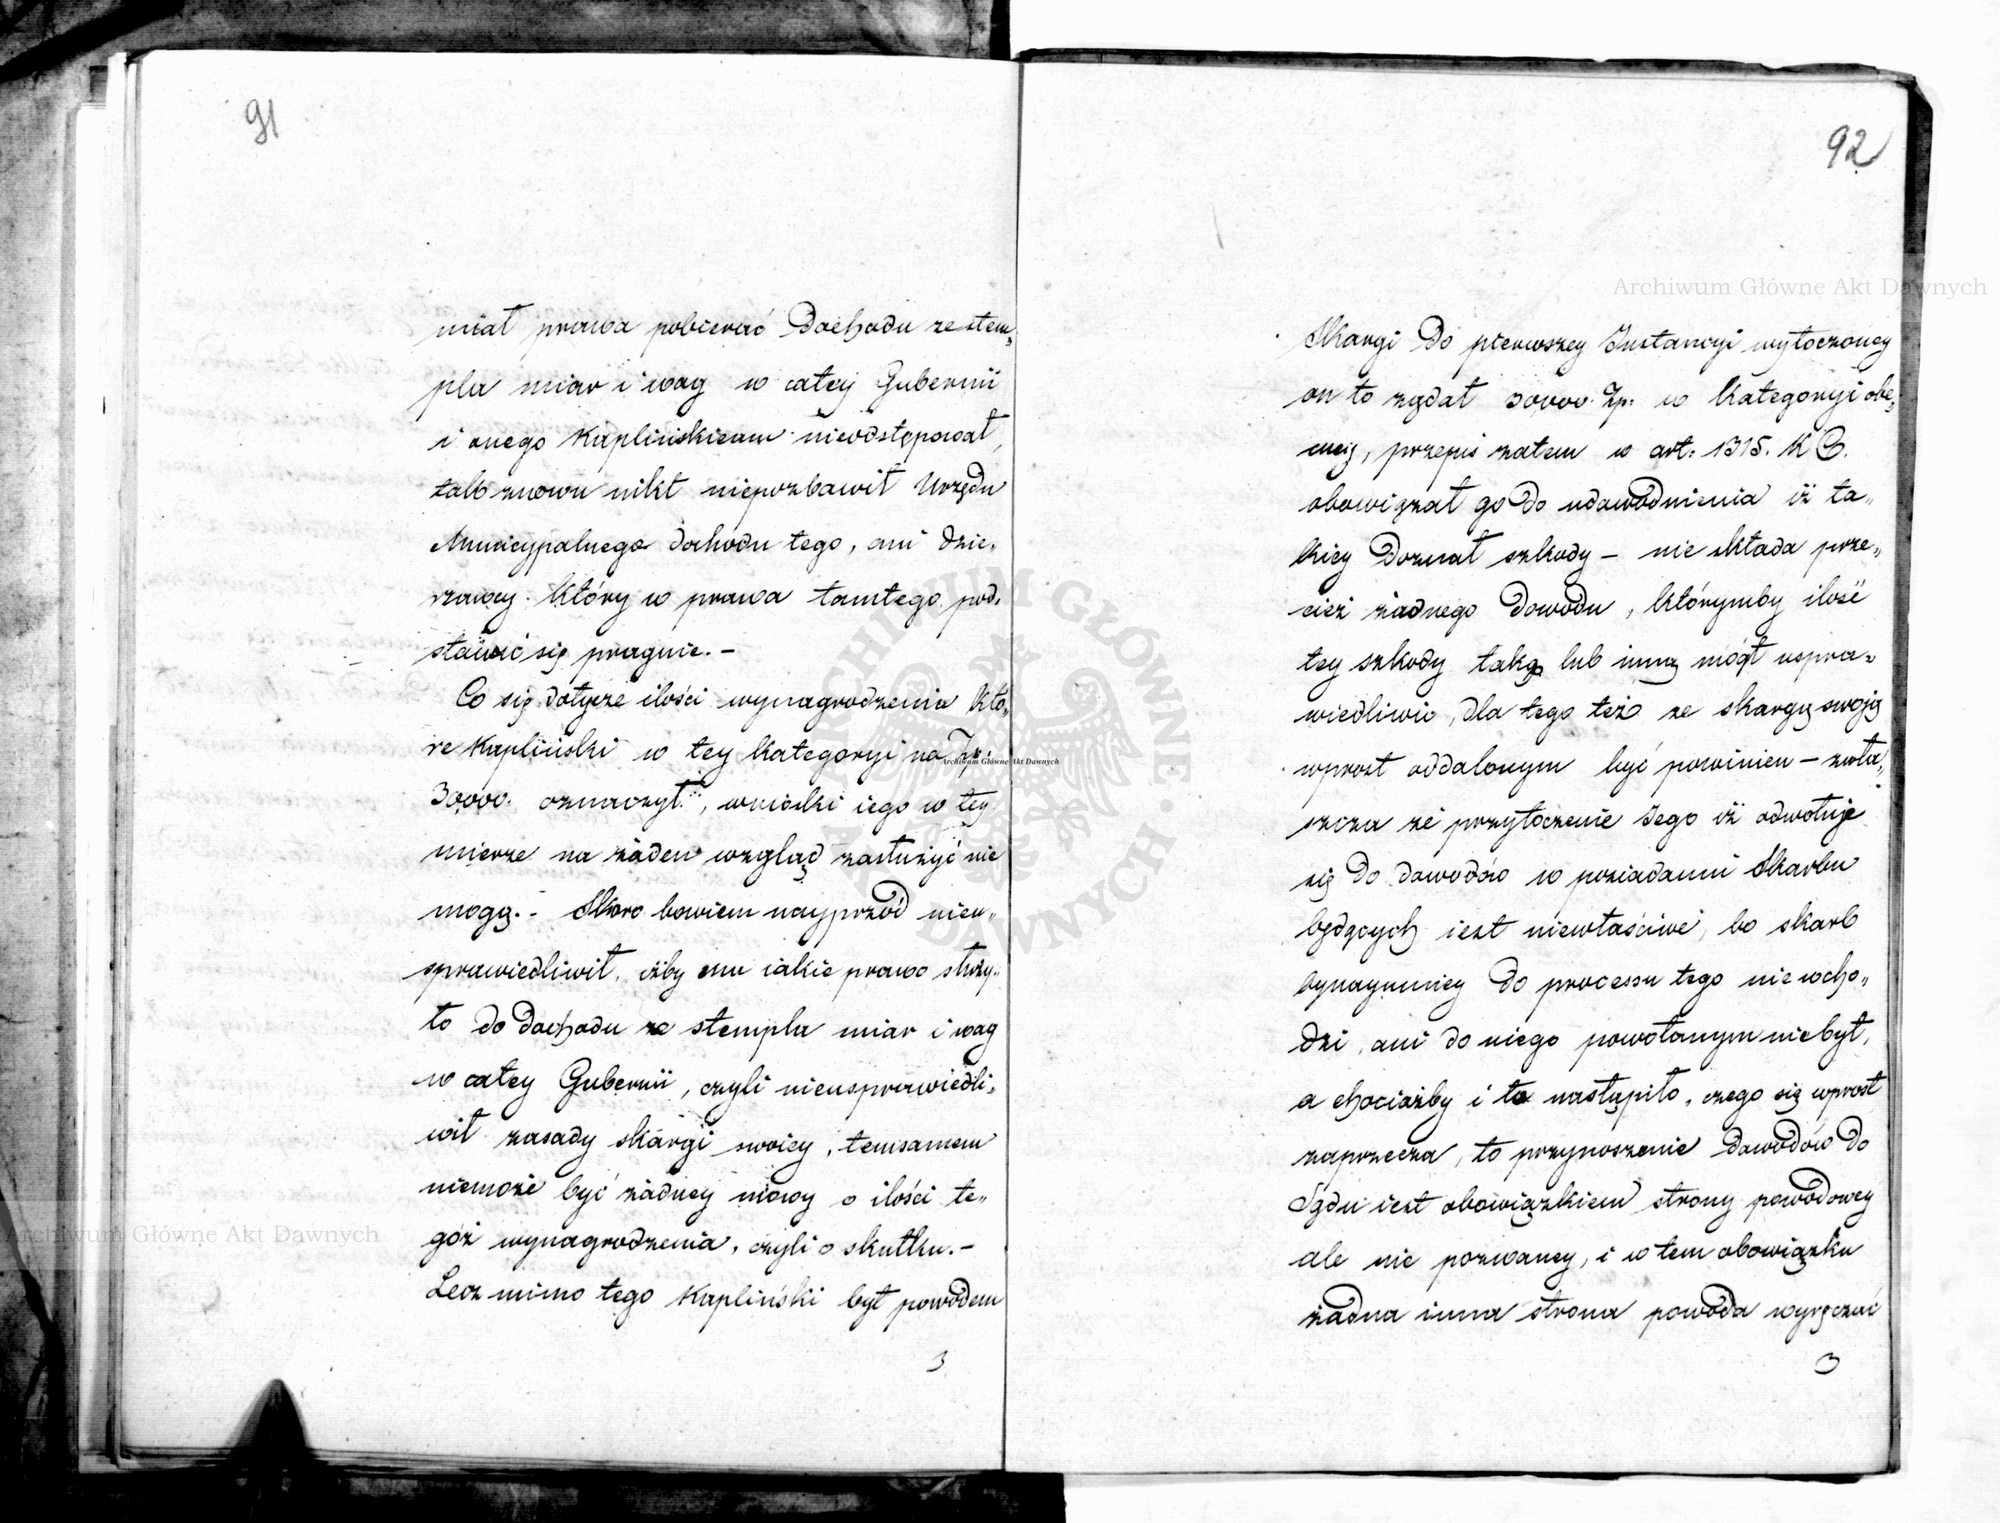 91
miał prawa pobierać Dochodu ze stem„
pla miar i wag w całey Gubernii
i onego Kaplińskiemu nieodstępował,
tak znowu nikt niepozbawił Urzędu
Municypalnego dochodu tego, ani dzie„
rzawcy który w prawa tamtego pod„
stawić się pragnie. –
Co się dotycze ilości wynagrodzenia któ„
re Kapliński w tey kategoryi na Zp:
30000. oznaczył, wnioski iego w tey
mierze na żaden wzgląd zasłużyć nie
mogą. – Skoro bowiem nayprzód nieu„
sprawiedliwił, iżby mu iakie prawo służy„
ło do dochodu ze stempla miar i wag
w całey Gubernii, czyli nieusprawiedli„
wił zasady skargi swoiey, temsamem
niemoże być żadney mowy o ilości te„
góż wynagrodzenia, czyli o skutku. –
Lecz mimo tego Kapliński był powodem
3
92
Skargi Do pierwszey Instancyi wytoczoney
on to żądał 30000. Zp: w Kategoryi obe„
cney, przepis zatem w art: 1315. K C.
obowiązał go Do udowodnienia iż ta„
kiey Doznał szkody – nie składa prze„
cież żadnego Dowodu, którymby ilość
tey szkody taką lub inną mógł uspra„
wiedliwić, dla tego też ze skargą swoją
wprost oddalonym być powinien – zwła„
szcza że przytoczenie Jego iż odwołuje
się Do dowodów w posiadaniu Skarbu
będących iest niewłaściwe, bo skarb
bynaymniey Do processu tego nie wcho„
dzi, ani do niego powołanym niebył,
a chociażby i to nastąpiło, czego się wprost
zaprzecza, to przynoszenie Dowodów Do
Sądu iest obowiązkiem strony powodowey
ale nie pozwaney, i w tem obowiązku
żadna inna strona powoda wyręczać
3
Archiwum Główne Akt Dawnych
Archiwum Główne Akt Dawnych
Archiwum Główne Akt Dawnych
ARCHIWUM GŁÓWNE AKT DAWNYCH